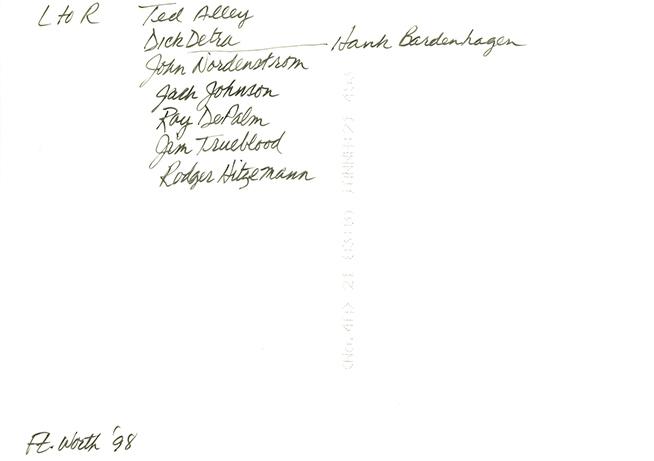 L to R Ted Alley
Dick Detra — Hank Bardenhagen
John Nordenstrom
Jack Johnson
Ray DePalm
Jim Trueblood
Rodger Hitzemann
Ft. Worth '98